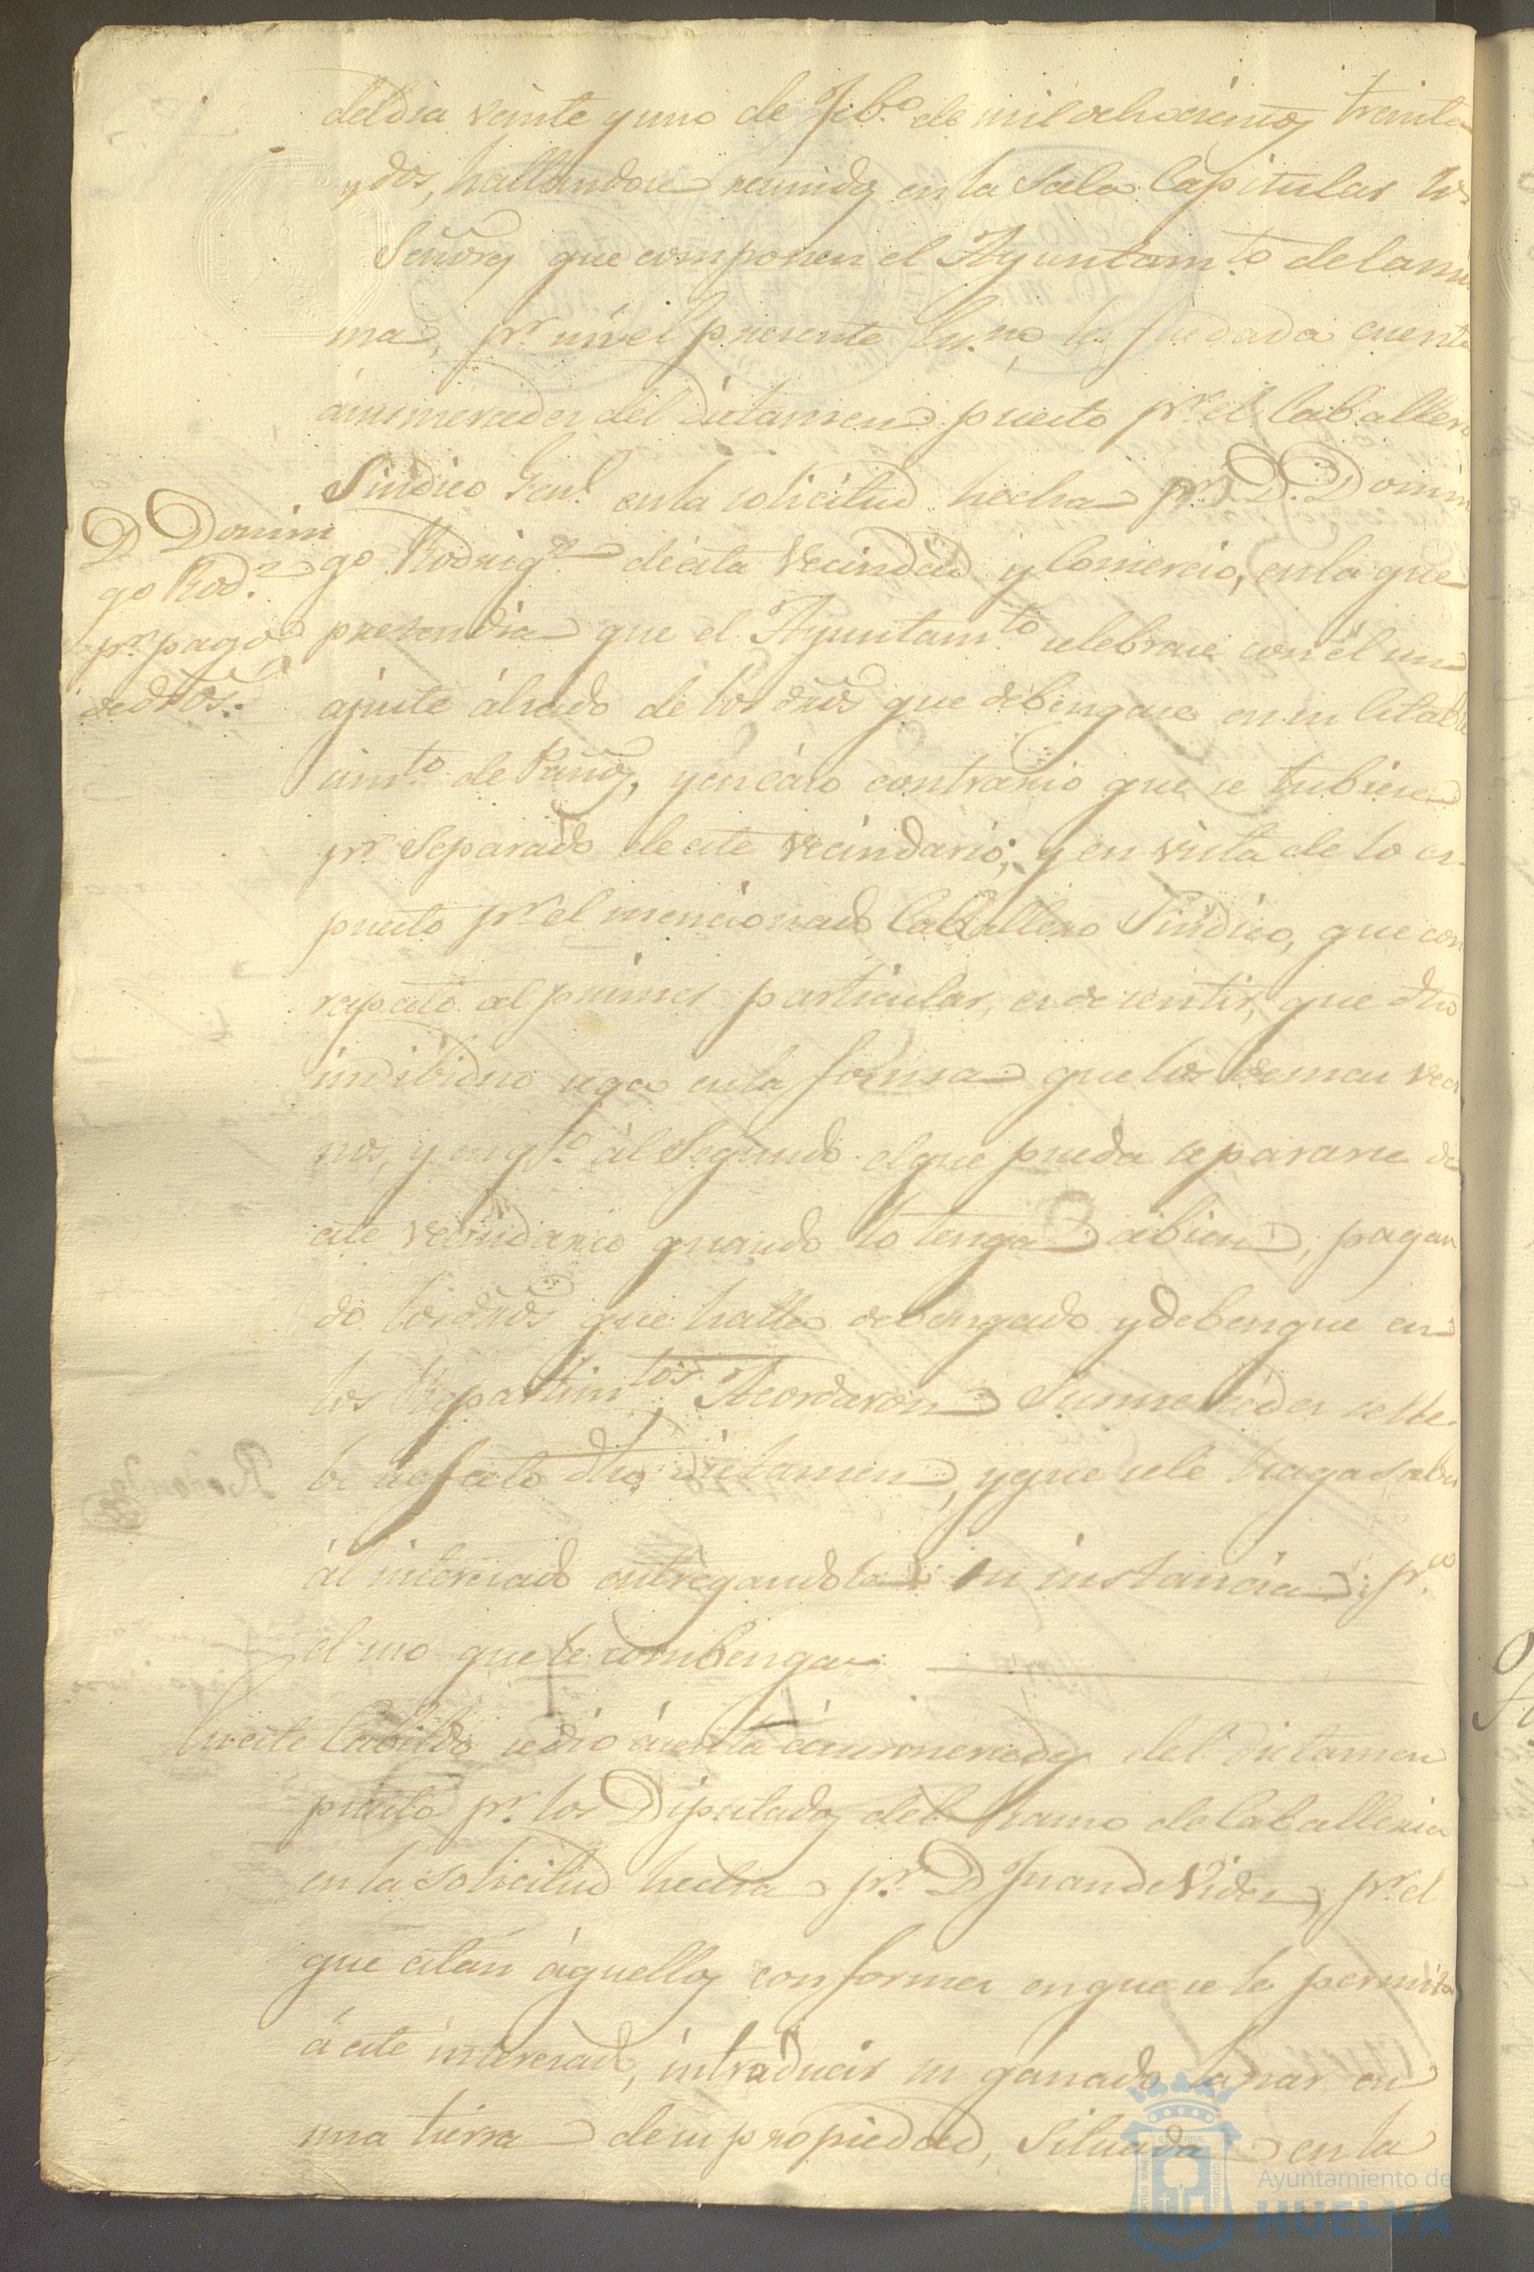 del dia veinte y uno de Feb.o de mil ochocientos treinta
y dos, hallandose reunidos en la Sala Capitular los
Señores que componen el Ayuntam.to de la mis
ma, pr. mi el presente Ss.no les fue dada cuenta
á sus mercedes del dictamen puesto pr. el Caballero
Sindico Genl. en la solicitud hecha pr. D. Domin
D Domin
go Rod.z
pr. pago
de dros.
go Rodrig.z de esta Vecindad y Comercio, en la que
pretendia que el Ayuntam.to celebrase con él un
ajuste álsado de los dros que debengase en su Estable
cim.to de Paños, y en cáso contrario que se tubiese
pr. Separado de este vecindario; y en vista de lo es
puesto pr. el mencionado Caballero Sindico, que con
respecto al primer particular, es de sentir, que dho
individuo siga en la forma que los demas veci
nos, y en q.to ál Segundo el que pueda separarse de
este vecindario quando lo tenga á bien, pagan
do los dros que halla debengado y debengue en
los Repartim.tos Acordaron Sus mercedes se lle
be á efecto dho dictamen, y que se le haga saber
ál interesado entregandole su instancia pr.a
el uso que le combenga
En este Cabildo se dió cuenta á sus mercedes del dictamen
puesto pr. los Diputados del Ramo de Caballeria
en la solicitud hecha pr. D Juan de Vides, pr. el
que están áquellos conformes en que se le permita
á este interesado, introducir su ganado lanar en
una tierra de su propiedad, Situada en la
Ayuntamiento de
HUELVA